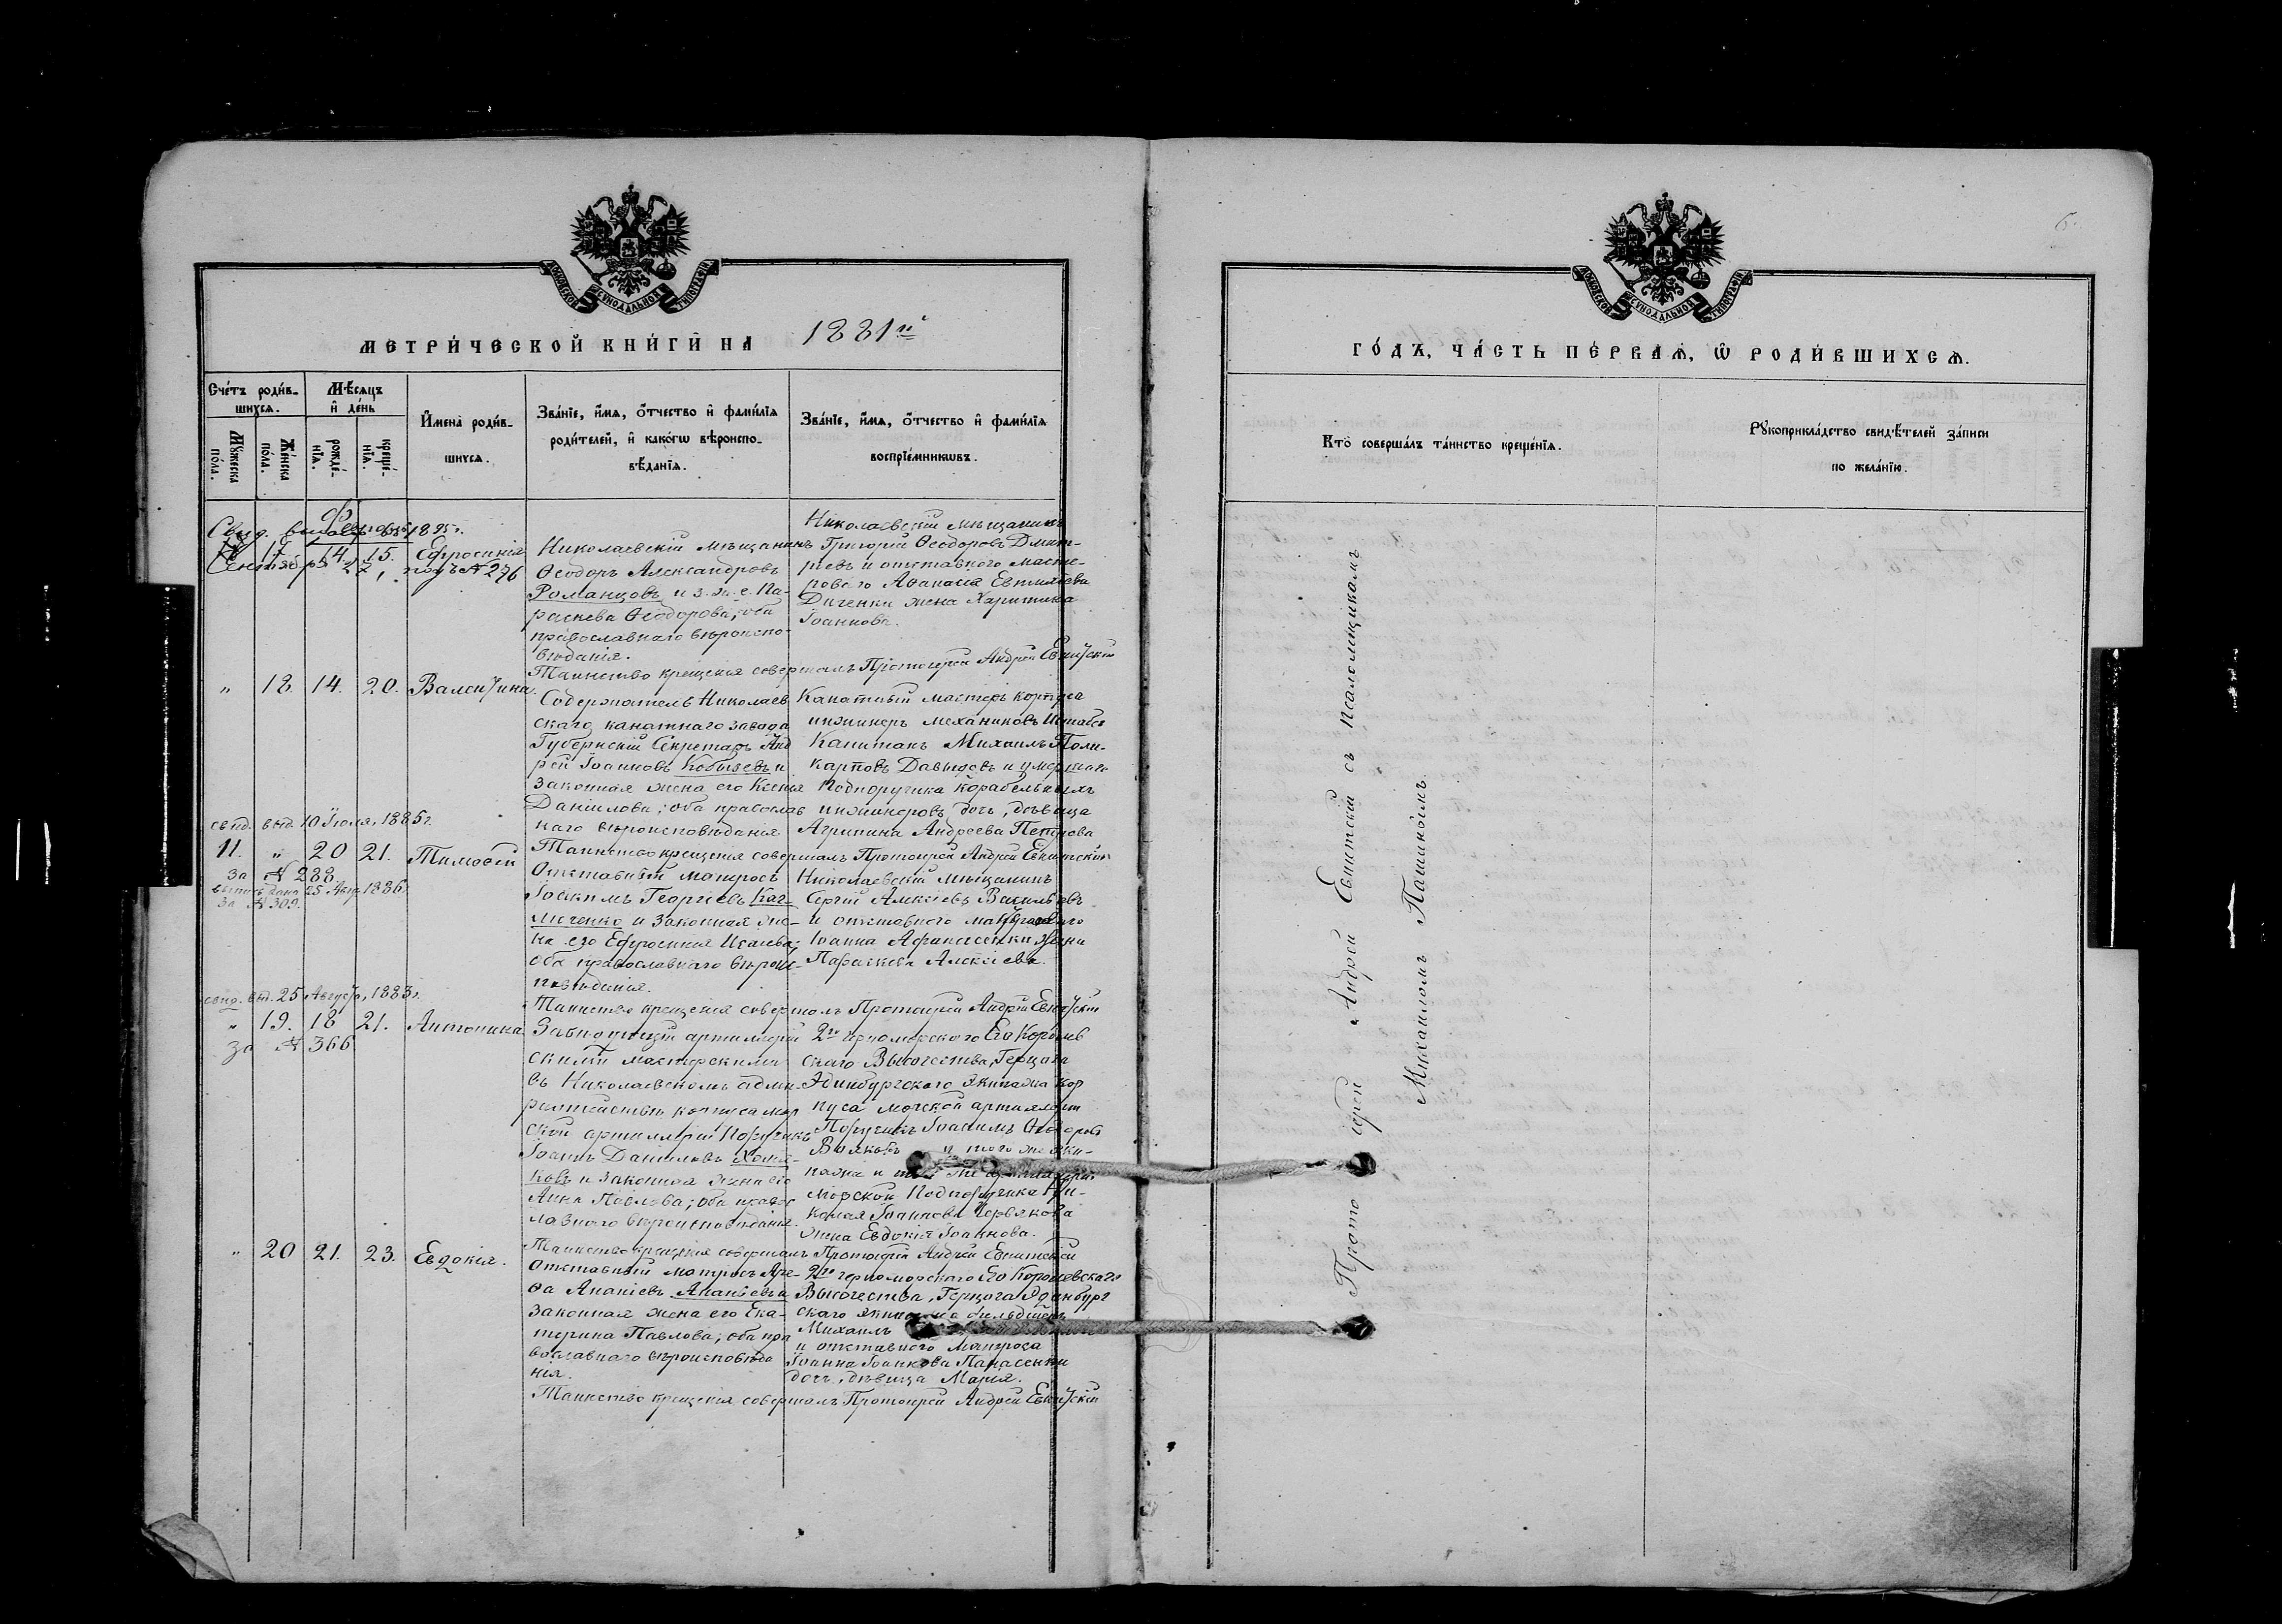 МОСКОВСКОЙ СУНОДАЛЬНОЙ ТИПОГРАФІИ
МЕТРИ́ЧЕСКОЙ КНИ́ГИ НА 1881й
Сче́тъ роди́в-
шихся.
Мѣ́сяцъ
и҆ де́нь
Мꙋ́жеска
по́ла.
Же́нска
по́ла.
рожде́-
нїя.
креще́-
нїя.
И҆мена̀ роди́в-
шихся.
Зва́нїе, и҆́мя, ѻ҆́тчество и҆ фами́лїя
роди́телей, и҆ како́гѡ вѣроиспо-
вѣ́данїя.
Зва́нїе, и҆́мя, ѻ҆́тчество и҆ фами́лїя
воспрїе́мникѡвъ.
Февраль
Свид. 1895г.
17. 14. 15. Ефросинія
Сентября 27, № 276
Николаевскій мѣщанинъ
Ѳеодоръ Александровъ
Романцовъ и з. ж. е. Па-
раскева Ѳеодорова; оба
православнаго вѣроиспо-
вѣданія.
Николаевскій мѣщанинъ
Григорій Ѳеодоровъ Дмит-
ріевъ и отставного масте-
рового Аѳанасія
жена Харитина
Іоаннова.
Таинство крещенія совершалъ Протоіерей Андрей Евнитскій
" 18. 14. 20. Валентина.
Содержатель Николаев
скаго канатнаго завода
Губернскій Секретарь Анд
рей Іоанновъ Кобызевъ и
законная жена его Ксенія
Даніилова; оба православ
наго вѣроисповѣданія
Канатный мастеръ корпуса
инжинеръ механиковъ Штабсъ
Капитанъ Михаилъ Поли-
карповъ Давыдовъ и умершаго
Подпоручика корабельныхъ
инжинеровъ дочь, дѣвица
Агрипина Андреева Петрова
свид. выд. 10 Іюля, 1885г.
11. " 20 21. Тимоѳей
За № 288
выпись дана 25 Авг. 1886
За № 309.
Таинство крещенія совершалъ Протоіерей Андрей Евнитскій
Отставный матросъ
Іоакимъ Георгіевъ Кат-
люченко и законная же-
на его Ефросинія Исаіева;
оба православнаго вѣроис-
повѣданія.
Николаевскій мѣщанинъ
Сергій Алексіевъ Васильевъ
и отставного
Іоанна Афанасенки жена
Параскева Алексіева.
свид. выд. 25 Августа, 1883г.
" 19. 18 21. Антонина
За № 366
Таинство крещенія совершалъ Протоіерей Андрей Евнитскій
Завѣдующій артиллерій
скими мастерскими
въ Николаевскомъ адми-
ралтействѣ корпуса мор
ской артиллеріи Поручикъ
Іоаннъ Даниловъ Хомя-
ковъ и законная жена его
Анна Павлова; оба правос
лавнаго вѣроисповѣданія.
2го черноморскаго Его Королев
скаго Высочества, Герцога
Эдинбургскаго экипажа кор
пуса морской артиллеріи
Поручикъ Іоакимъ Ѳеодоровъ
и того же эки-
пажа и той же артиллеріи
морской Подпоручика Ни-
колая Іоаннова Червякова
жена Евдокія Іоаннова.
" 20 21. 23. Евдокія.
Таинство крещенія совершалъ Протоіерей Андрей Евнитскій
Отставный матросъ Аре-
ѳа Ананіевъ Ананіевъ и
законная жена его Ека-
терина Павлова; оба пра
вославнаго вѣроисповѣда
нія.
2го черноморскаго Его Королевскаго
Высочества, Герцога Эдинбург
скаго экипажа фельдшеръ
Михаилъ
и отставного матроса
Іоанна Іоаннова Панасенки
дочь, дѣвица Марія.
Таинство крещенія совершалъ Протоіерей Андрей Евнитскій
6.
МОСКОВСКОЙ СУНОДАЛЬНОЙ ТИПОГРАФІИ
ГО́ДЪ, ЧА́СТЬ ПЕ́РВАЯ, Ѡ҆ РОДИ́ВШИХСЯ.
Кто̀ соверша́лъ та́инство креще́нїя.
Рꙋкоприкла́дство свидѣ́телей за́писи
по жела́нїю.
Протоіерей Андрей Евнитскій съ псаломщикомъ
Михаиломъ Пашинымъ.